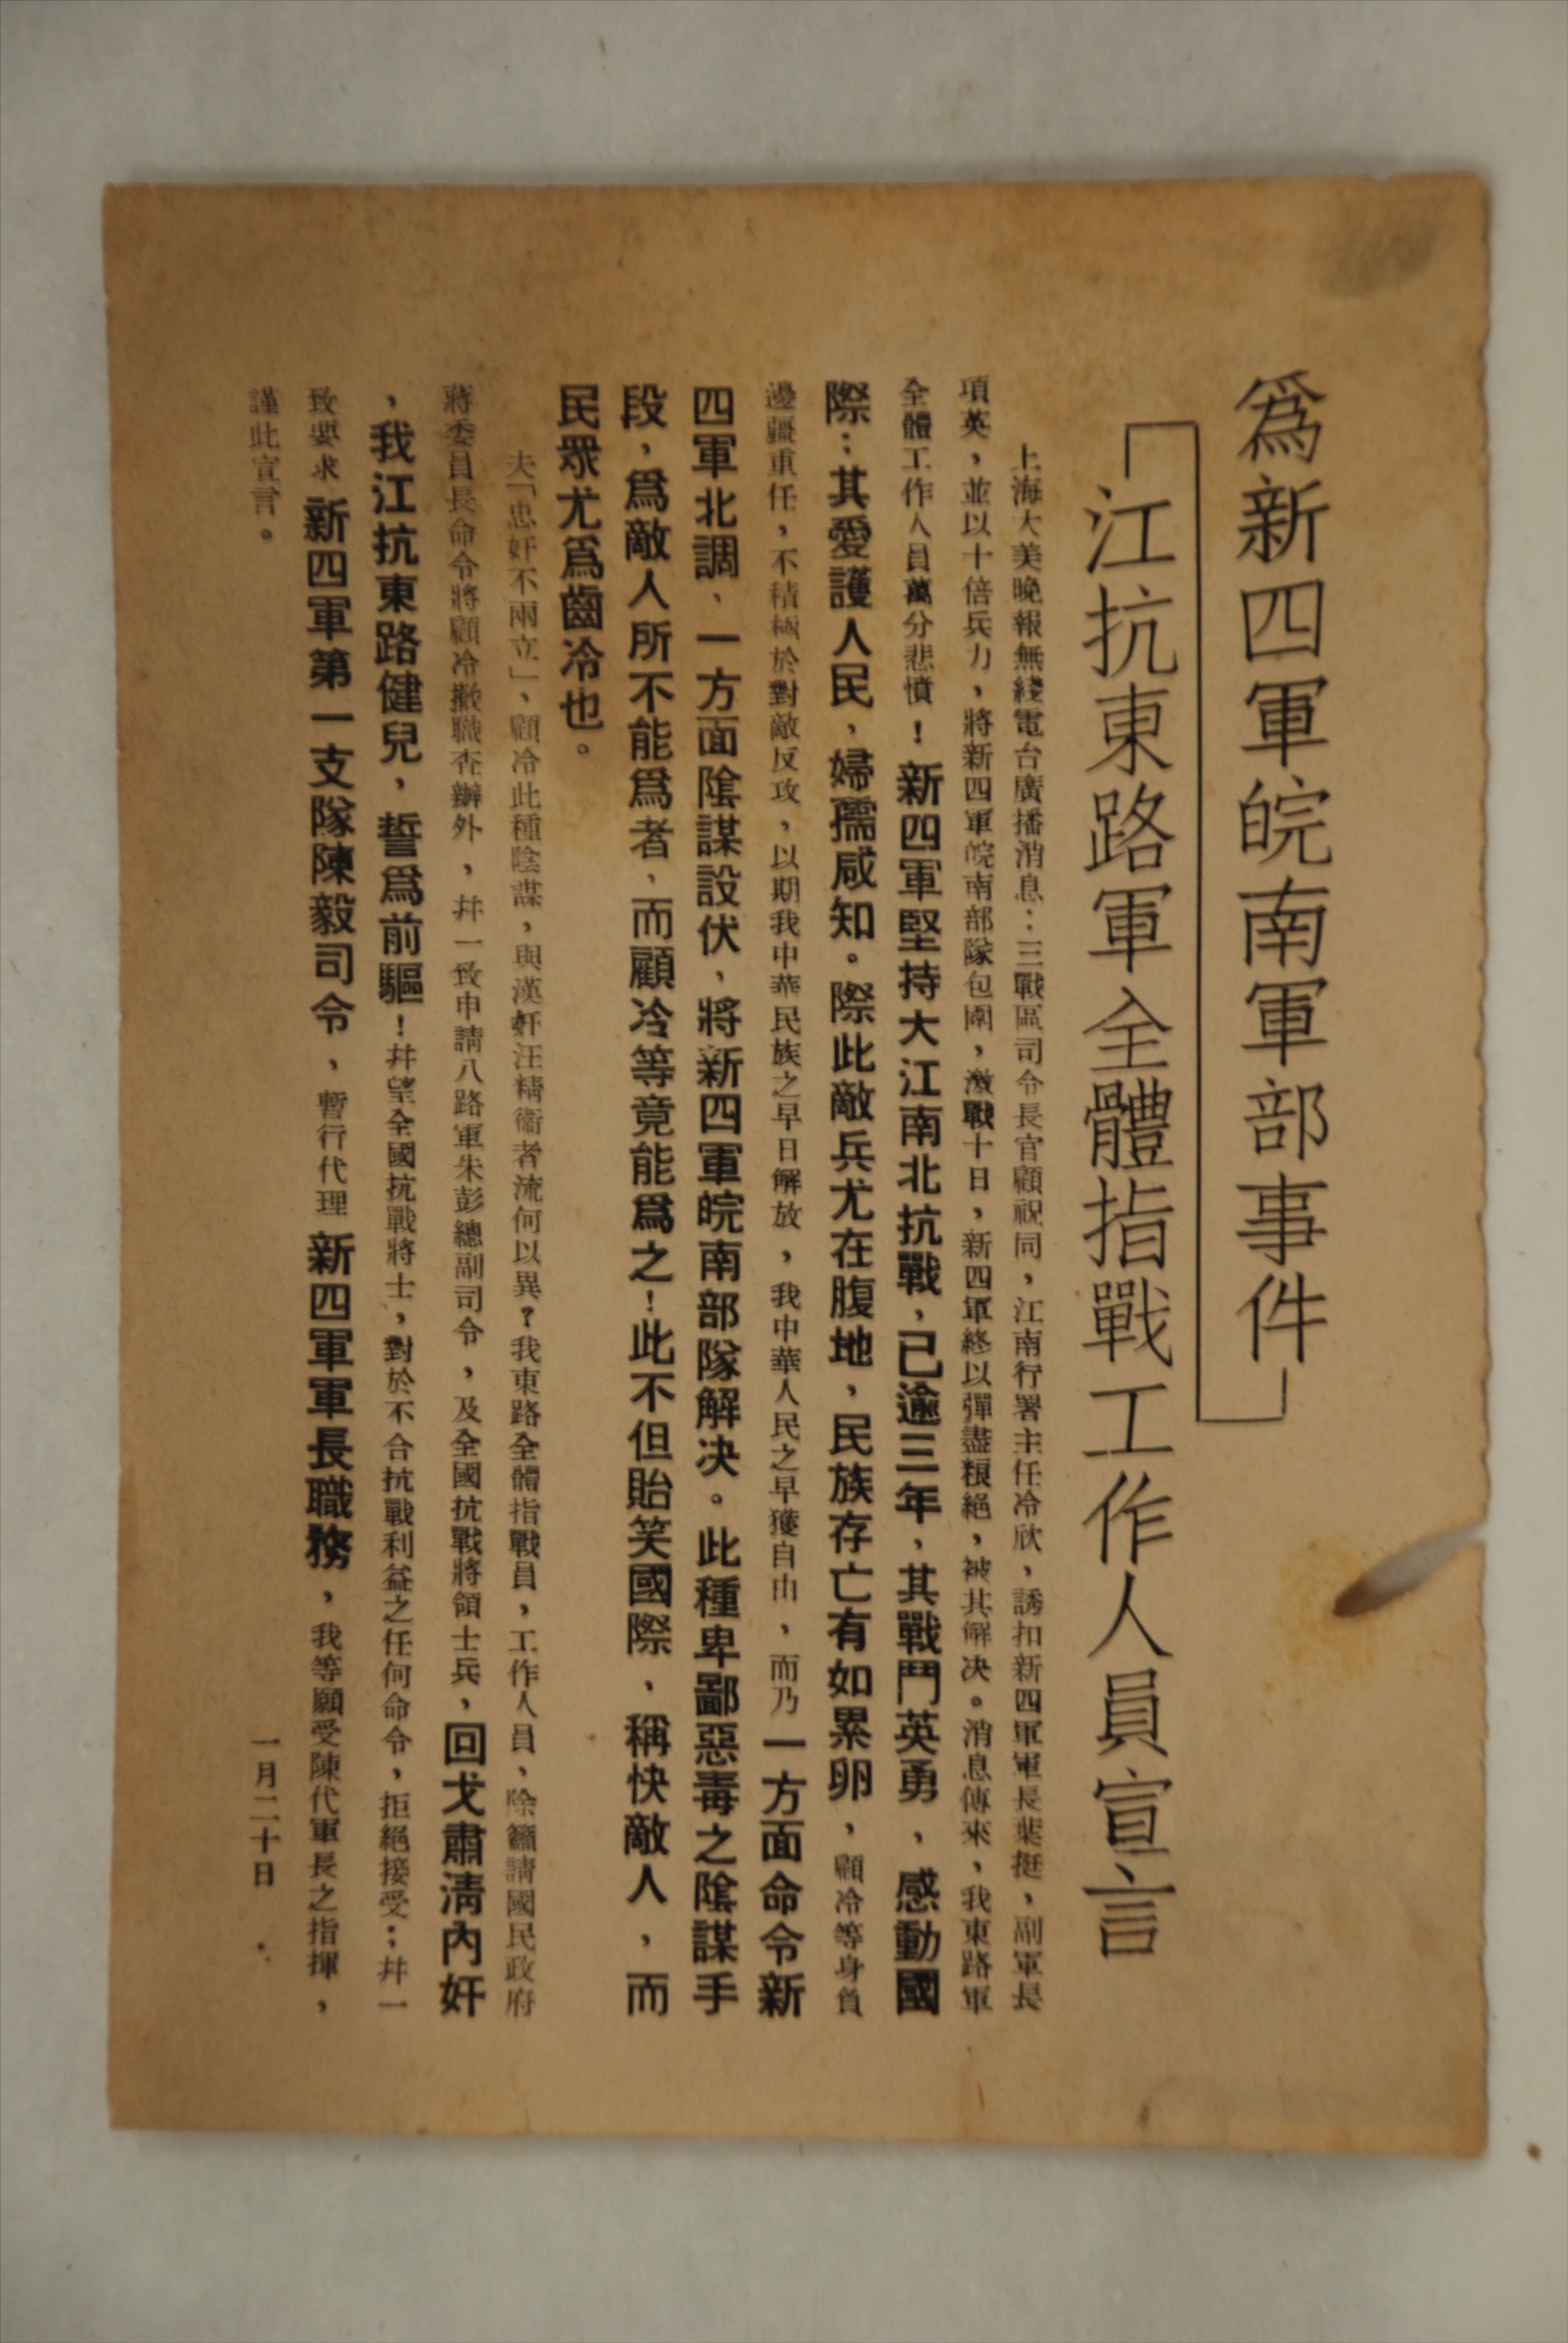 爲新四軍皖南軍部事件
江抗東路軍全體指戰工作人員宣言
上海大美晚報無綫電台廣播消息：三戰區司令長官顧祝同，江南行署主任冷欣，誘扣新四軍軍長葉挺，副軍長
項英，並以十倍兵力，將新四軍皖南部隊包圍，激戰十日，新四軍終以彈盡粮絕，被其解决。消息傳來，我東路軍
全體工作人員萬分悲憤！新四軍堅持大江南北抗戰，已逾三年，其戰鬥英勇，感動國
際；其愛護人民，婦孺咸知。際此敵兵尤在腹地，民族存亡有如累卵，顧冷等身負
邊疆重任，不積極於對敵反攻，以期我中華民族之早日解放，我中華人民之早獲自由，而乃一方面命令新
四軍北調，一方面陰謀設伏，將新四軍皖南部隊解决。此種卑鄙惡毒之陰謀手
段，爲敵人所不能爲者，而顧冷等竟能爲之！此不但貽笑國際，稱快敵人，而
民衆尤爲齒冷也。
夫「忠奸不兩立」，顧冷此種陰謀，與漢奸汪精衞者流何以異？我東路全體指戰員，工作人員，除籲請國民政府
蔣委員長命令將顧冷撤職查辦外，幷一致申請八路軍朱彭總副司令，及全國抗戰將領士兵，回戈肅淸內奸
，我江抗東路健兒，誓爲前驅！幷望全國抗戰將士，對於不合抗戰利益之任何命令，拒絕接受；幷一
致要求新四軍第一支隊陳毅司令，暫行代理新四軍軍長職務，我等願受陳代軍長之指揮，
謹此宣言。
一月二十日